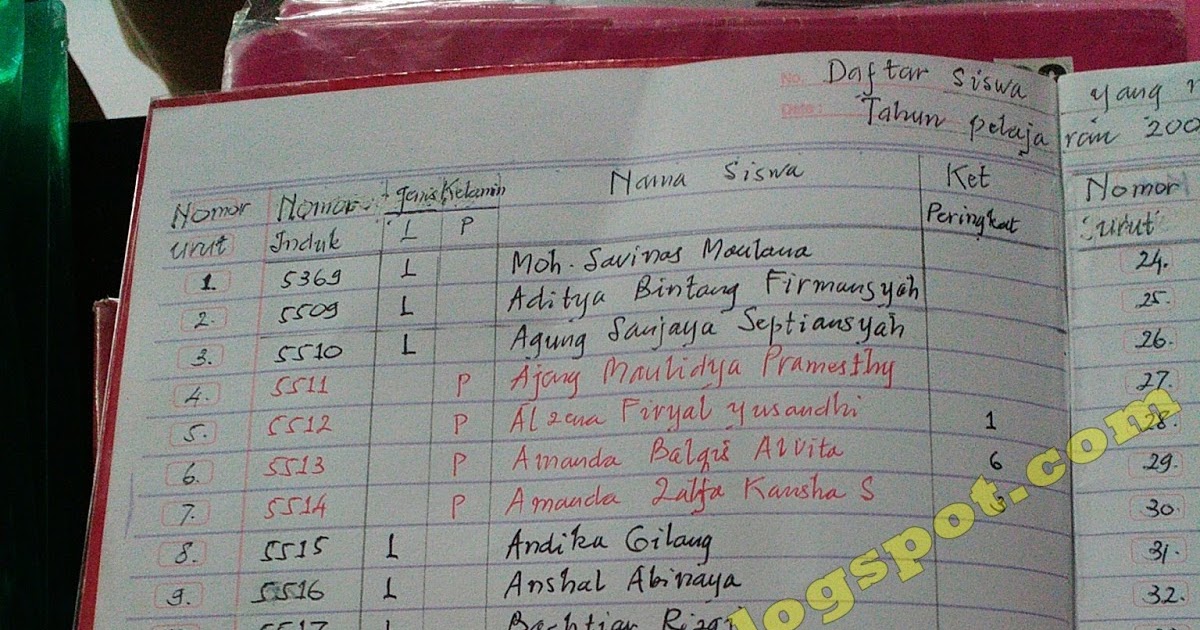 No. Daftar siswa yang
Date: Tahun pelajaran 200
Nomor Nomor Jenis Kelamin Nama Siswa Ket Nomor
urut Induk L P Peringkat urut
1. 5369 L Moh. Savinas Maulana 24.
2. 5509 L Aditya Bintang Firmansyah 25.
3. 5510 L Agung Sanjaya Septiansyah 26.
4. 5511 P Ajeng Maulidya Pramesthy 27.
5. 5512 P Alzena Firyal yusandhi 1 28.
6. 5513 P Amanda Balqis Alvita 6 29.
7. 5514 P Amanda Zalfa Kansha S 3 30.
8. 5515 L Andika Gilang 31.
9. 5516 L Anshal Abinaya 32.
5517 L Bachtiar Rizqi
logspot.com